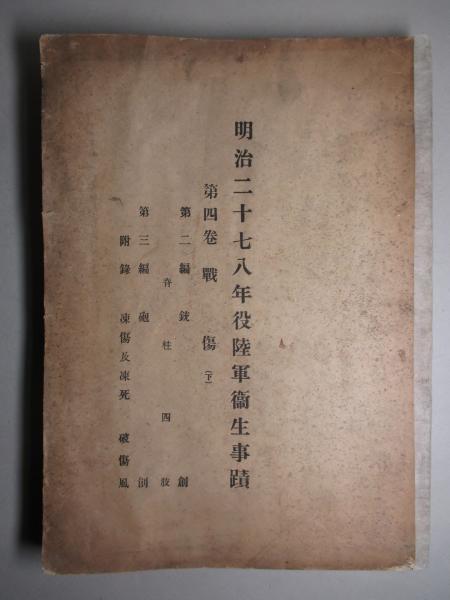 明治二十七八年役陸軍衞生事蹟
第四卷 戰傷(下)
第二編 銃創
脊柱 四肢
第三編 砲創
附錄 凍傷及凍死 破傷風